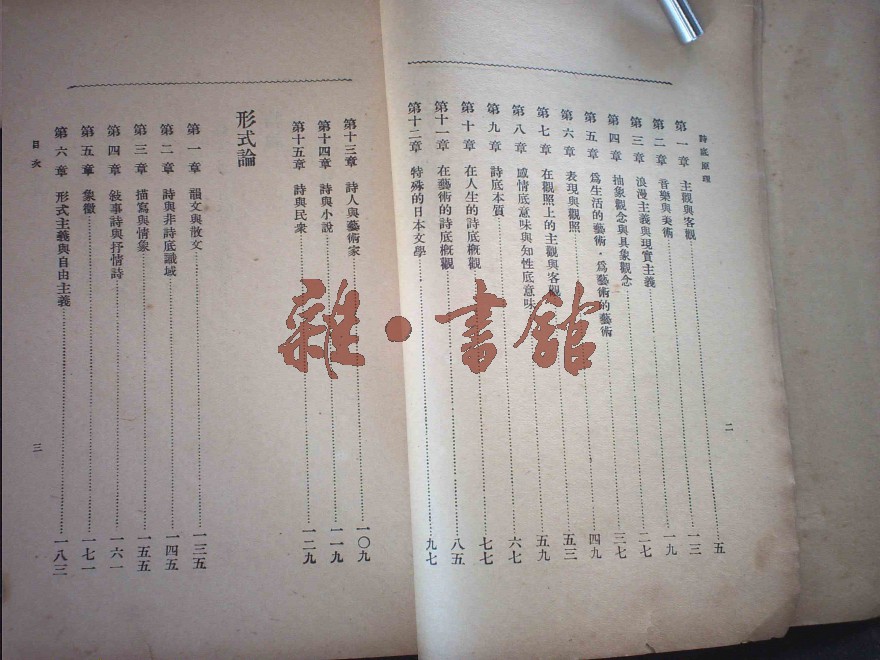 詩底原理
第一章 主觀與客觀……五
第二章 音樂與美術……一三
第三章 浪漫主義與現實主義……一九
第四章 抽象觀念與具象觀念……二七
第五章 爲生活的藝術・爲藝術的藝術……三七
第六章 表現與觀照……四九
第七章 在觀照上的主觀與客觀……五三
第八章 感情底意味與知性底意味……五九
第九章 詩底本質……六七
第十章 在人生的詩底概觀……七七
第十一章 在藝術的詩底概觀……八五
第十二章 特殊的日本文學……九七
二
第十三章 詩人與藝術家……一〇九
第十四章 詩與小說……一一九
第十五章 詩與民衆……一二九
形式論
第一章 韻文與散文……一三五
第二章 詩與非詩底識域……一四五
第三章 描寫與情象……一五五
第四章 敍事詩與抒情詩……一六一
第五章 象徵……一七一
第六章 形式主義與自由主義……一八三
目次
三
雜・書館